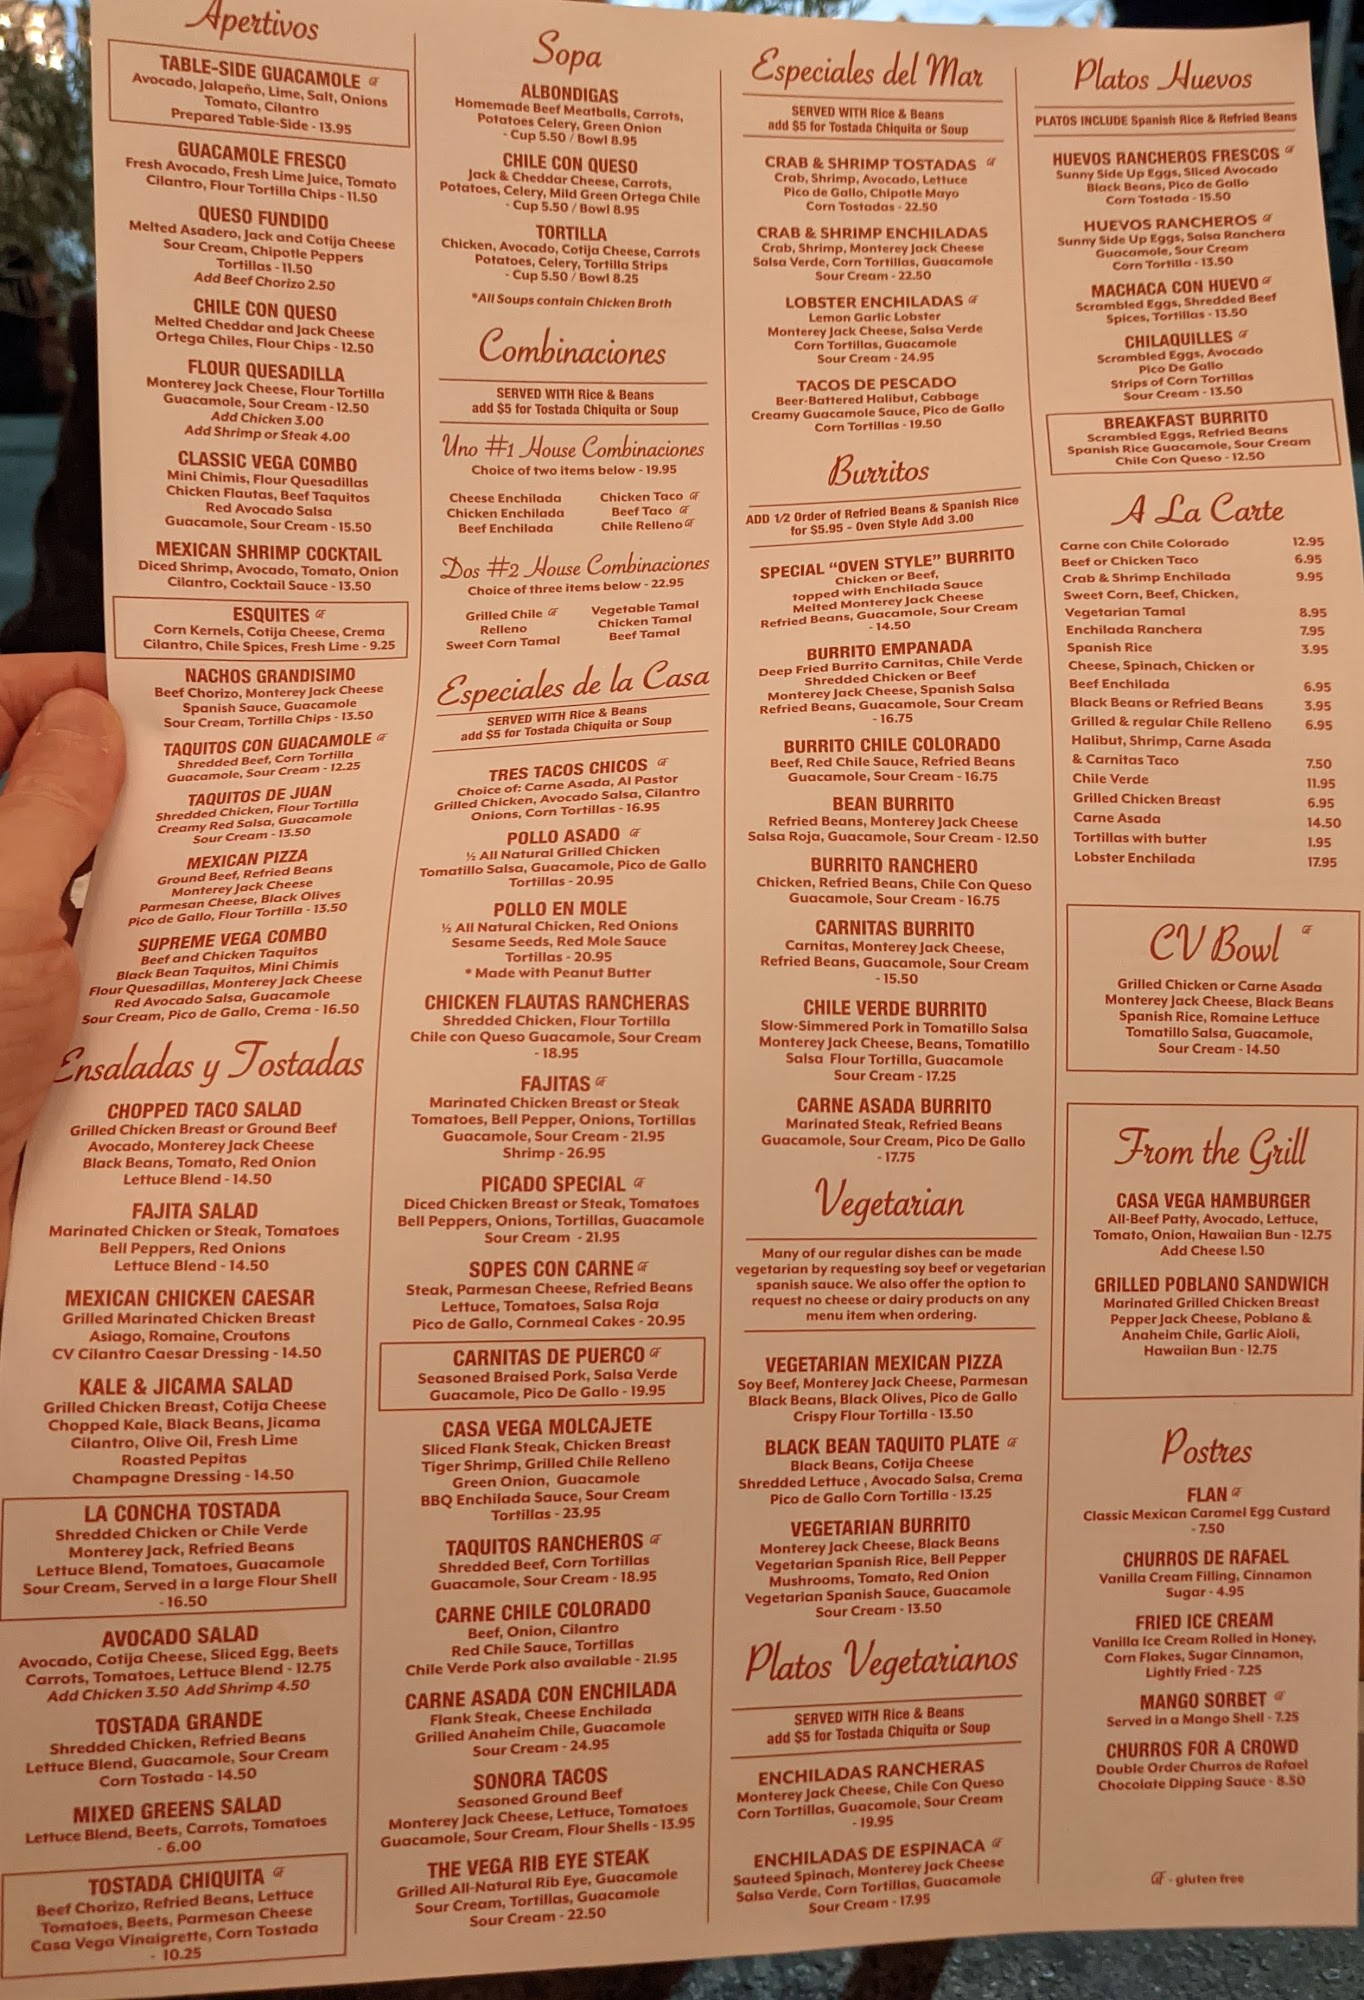 Apertivos
TABLE-SIDE GUACAMOLE GF
Avocado, Jalapeño, Lime, Salt, Onions
Tomato, Cilantro
Prepared Table-Side - 13.95
GUACAMOLE FRESCO
Fresh Avocado, Fresh Lime Juice, Tomato
Cilantro, Flour Tortilla Chips - 11.50
QUESO FUNDIDO
Melted Asadero, Jack and Cotija Cheese
Sour Cream, Chipotle Peppers
Tortillas - 11.50
Add Beef Chorizo 2.50
CHILE CON QUESO
Melted Cheddar and Jack Cheese
Ortega Chiles, Flour Chips - 12.50
FLOUR QUESADILLA
Monterey Jack Cheese, Flour Tortilla
Guacamole, Sour Cream - 12.50
Add Chicken 3.00
Add Shrimp or Steak 4.00
CLASSIC VEGA COMBO
Mini Chimis, Flour Quesadillas
Chicken Flautas, Beef Taquitos
Red Avocado Salsa
Guacamole, Sour Cream - 15.50
MEXICAN SHRIMP COCKTAIL
Diced Shrimp, Avocado, Tomato, Onion
Cilantro, Cocktail Sauce - 13.50
ESQUITES GF
Corn Kernels, Cotija Cheese, Crema
Cilantro, Chile Spices, Fresh Lime - 9.25
NACHOS GRANDISIMO
Beef Chorizo, Monterey Jack Cheese
Spanish Sauce, Guacamole
Sour Cream, Tortilla Chips - 13.50
TAQUITOS CON GUACAMOLE GF
Shredded Beef, Corn Tortilla
Guacamole, Sour Cream - 12.25
TAQUITOS DE JUAN
Shredded Chicken, Flour Tortilla
Creamy Red Salsa, Guacamole
Sour Cream - 13.50
MEXICAN PIZZA
Ground Beef, Refried Beans
Monterey Jack Cheese
Parmesan Cheese, Black Olives
Pico de Gallo, Flour Tortilla - 13.50
SUPREME VEGA COMBO
Beef and Chicken Taquitos
Black Bean Taquitos, Mini Chimis
Flour Quesadillas, Monterey Jack Cheese
Red Avocado Salsa, Guacamole
Sour Cream, Pico de Gallo, Crema - 16.50
Ensaladas y Tostadas
CHOPPED TACO SALAD
Grilled Chicken Breast or Ground Beef
Avocado, Monterey Jack Cheese
Black Beans, Tomato, Red Onion
Lettuce Blend - 14.50
FAJITA SALAD
Marinated Chicken or Steak, Tomatoes
Bell Peppers, Red Onions
Lettuce Blend - 14.50
MEXICAN CHICKEN CAESAR
Grilled Marinated Chicken Breast
Asiago, Romaine, Croutons
CV Cilantro Caesar Dressing - 14.50
KALE & JICAMA SALAD
Grilled Chicken Breast, Cotija Cheese
Chopped Kale, Black Beans, Jicama
Cilantro, Olive Oil, Fresh Lime
Roasted Pepitas
Champagne Dressing - 14.50
LA CONCHA TOSTADA
Shredded Chicken or Chile Verde
Monterey Jack, Refried Beans
Lettuce Blend, Tomatoes, Guacamole
Sour Cream, Served in a large Flour Shell
- 16.50
AVOCADO SALAD
Avocado, Cotija Cheese, Sliced Egg, Beets
Carrots, Tomatoes, Lettuce Blend - 12.75
Add Chicken 3.50 Add Shrimp 4.50
TOSTADA GRANDE
Shredded Chicken, Refried Beans
Lettuce Blend, Guacamole, Sour Cream
Corn Tostada - 14.50
MIXED GREENS SALAD
Lettuce Blend, Beets, Carrots, Tomatoes
- 6.00
TOSTADA CHIQUITA GF
Beef Chorizo, Refried Beans, Lettuce
Tomatoes, Beets, Parmesan Cheese
Casa Vega Vinaigrette, Corn Tostada
- 10.25
Sopa
ALBONDIGAS
Homemade Beef Meatballs, Carrots,
Potatoes Celery, Green Onion
- Cup 5.50 / Bowl 8.95
CHILE CON QUESO
Jack & Cheddar Cheese, Carrots,
Potatoes, Celery, Mild Green Ortega Chile
- Cup 5.50 / Bowl 8.95
TORTILLA
Chicken, Avocado, Cotija Cheese, Carrots
Potatoes, Celery, Tortilla Strips
- Cup 5.50 / Bowl 8.25
*All Soups contain Chicken Broth
Combinaciones
SERVED WITH Rice & Beans
add $5 for Tostada Chiquita or Soup
Uno #1 House Combinaciones
Choice of two items below - 19.95
Cheese Enchilada
Chicken Enchilada
Beef Enchilada
Chicken Taco GF
Beef Taco GF
Chile Relleno GF
Dos #2 House Combinaciones
Choice of three items below - 22.95
Grilled Chile GF
Relleno
Sweet Corn Tamal
Vegetable Tamal
Chicken Tamal
Beef Tamal
Especiales de la Casa
SERVED WITH Rice & Beans
add $5 for Tostada Chiquita or Soup
TRES TACOS CHICOS GF
Choice of: Carne Asada, Al Pastor
Grilled Chicken, Avocado Salsa, Cilantro
Onions, Corn Tortillas - 16.95
POLLO ASADO GF
½ All Natural Grilled Chicken
Tomatillo Salsa, Guacamole, Pico de Gallo
Tortillas - 20.95
POLLO EN MOLE
½ All Natural Chicken, Red Onions
Sesame Seeds, Red Mole Sauce
Tortillas - 20.95
* Made with Peanut Butter
CHICKEN FLAUTAS RANCHERAS
Shredded Chicken, Flour Tortilla
Chile con Queso Guacamole, Sour Cream
- 18.95
FAJITAS GF
Marinated Chicken Breast or Steak
Tomatoes, Bell Pepper, Onions, Tortillas
Guacamole, Sour Cream - 21.95
Shrimp - 26.95
PICADO SPECIAL GF
Diced Chicken Breast or Steak, Tomatoes
Bell Peppers, Onions, Tortillas, Guacamole
Sour Cream - 21.95
SOPES CON CARNE GF
Steak, Parmesan Cheese, Refried Beans
Lettuce, Tomatoes, Salsa Roja
Pico de Gallo, Cornmeal Cakes - 20.95
CARNITAS DE PUERCO GF
Seasoned Braised Pork, Salsa Verde
Guacamole, Pico De Gallo - 19.95
CASA VEGA MOLCAJETE
Sliced Flank Steak, Chicken Breast
Tiger Shrimp, Grilled Chile Relleno
Green Onion, Guacamole
BBQ Enchilada Sauce, Sour Cream
Tortillas - 23.95
TAQUITOS RANCHEROS GF
Shredded Beef, Corn Tortillas
Guacamole, Sour Cream - 18.95
CARNE CHILE COLORADO
Beef, Onion, Cilantro
Red Chile Sauce, Tortillas
Chile Verde Pork also available - 21.95
CARNE ASADA CON ENCHILADA
Flank Steak, Cheese Enchilada
Grilled Anaheim Chile, Guacamole
Sour Cream - 24.95
SONORA TACOS
Seasoned Ground Beef
Monterey Jack Cheese, Lettuce, Tomatoes
Guacamole, Sour Cream, Flour Shells - 13.95
THE VEGA RIB EYE STEAK
Grilled All-Natural Rib Eye, Guacamole
Sour Cream, Tortillas, Guacamole
Sour Cream - 22.50
Especiales del Mar
SERVED WITH Rice & Beans
add $5 for Tostada Chiquita or Soup
CRAB & SHRIMP TOSTADAS GF
Crab, Shrimp, Avocado, Lettuce
Pico de Gallo, Chipotle Mayo
Corn Tostadas - 22.50
CRAB & SHRIMP ENCHILADAS
Crab, Shrimp, Monterey Jack Cheese
Salsa Verde, Corn Tortillas, Guacamole
Sour Cream - 22.50
LOBSTER ENCHILADAS GF
Lemon Garlic Lobster
Monterey Jack Cheese, Salsa Verde
Corn Tortillas, Guacamole
Sour Cream - 24.95
TACOS DE PESCADO
Beer-Battered Halibut, Cabbage
Creamy Guacamole Sauce, Pico de Gallo
Corn Tortillas - 19.50
Burritos
ADD 1/2 Order of Refried Beans & Spanish Rice
for $5.95 - Oven Style Add 3.00
SPECIAL "OVEN STYLE" BURRITO
Chicken or Beef,
topped with Enchilada Sauce
Melted Monterey Jack Cheese
Refried Beans, Guacamole, Sour Cream
- 14.50
BURRITO EMPANADA
Deep Fried Burrito Carnitas, Chile Verde
Shredded Chicken or Beef
Monterey Jack Cheese, Spanish Salsa
Refried Beans, Guacamole, Sour Cream
- 16.75
BURRITO CHILE COLORADO
Beef, Red Chile Sauce, Refried Beans
Guacamole, Sour Cream - 16.75
BEAN BURRITO
Refried Beans, Monterey Jack Cheese
Salsa Roja, Guacamole, Sour Cream - 12.50
BURRITO RANCHERO
Chicken, Refried Beans, Chile Con Queso
Guacamole, Sour Cream - 16.75
CARNITAS BURRITO
Carnitas, Monterey Jack Cheese,
Refried Beans, Guacamole, Sour Cream
- 15.50
CHILE VERDE BURRITO
Slow-Simmered Pork in Tomatillo Salsa
Monterey Jack Cheese, Beans, Tomatillo
Salsa Flour Tortilla, Guacamole
Sour Cream - 17.25
CARNE ASADA BURRITO
Marinated Steak, Refried Beans
Guacamole, Sour Cream, Pico De Gallo
- 17.75
Vegetarian
Many of our regular dishes can be made
vegetarian by requesting soy beef or vegetarian
spanish sauce. We also offer the option to
request no cheese or dairy products on any
menu item when ordering.
VEGETARIAN MEXICAN PIZZA
Soy Beef, Monterey Jack Cheese, Parmesan
Black Beans, Black Olives, Pico de Gallo
Crispy Flour Tortilla - 13.50
BLACK BEAN TAQUITO PLATE GF
Black Beans, Cotija Cheese
Shredded Lettuce , Avocado Salsa, Crema
Pico de Gallo Corn Tortilla - 13.25
VEGETARIAN BURRITO
Monterey Jack Cheese, Black Beans
Vegetarian Spanish Rice, Bell Pepper
Mushrooms, Tomato, Red Onion
Vegetarian Spanish Sauce, Guacamole
Sour Cream - 13.50
Platos Vegetarianos
SERVED WITH Rice & Beans
add $5 for Tostada Chiquita or Soup
ENCHILADAS RANCHERAS
Monterey Jack Cheese, Chile Con Queso
Corn Tortillas, Guacamole, Sour Cream
- 19.95
ENCHILADAS DE ESPINACA GF
Sauteed Spinach, Monterey Jack Cheese
Salsa Verde, Corn Tortillas, Guacamole
Sour Cream - 17.95
Platos Huevos
PLATOS INCLUDE Spanish Rice & Refried Beans
HUEVOS RANCHEROS FRESCOS GF
Sunny Side Up Eggs, Sliced Avocado
Black Beans, Pico de Gallo
Corn Tostada - 15.50
HUEVOS RANCHEROS GF
Sunny Side Up Eggs, Salsa Ranchera
Guacamole, Sour Cream
Corn Tortilla - 13.50
MACHACA CON HUEVO GF
Scrambled Eggs, Shredded Beef
Spices, Tortillas - 13.50
CHILAQUILLES GF
Scrambled Eggs, Avocado
Pico De Gallo
Strips of Corn Tortillas
Sour Cream - 13.50
BREAKFAST BURRITO
Scrambled Eggs, Refried Beans
Spanish Rice Guacamole, Sour Cream
Chile Con Queso - 12.50
A La Carte
Carne con Chile Colorado 12.95
Beef or Chicken Taco 6.95
Crab & Shrimp Enchilada 9.95
Sweet Corn, Beef, Chicken,
Vegetarian Tamal 8.95
Enchilada Ranchera 7.95
Spanish Rice 3.95
Cheese, Spinach, Chicken or
Beef Enchilada 6.95
Black Beans or Refried Beans 3.95
Grilled & regular Chile Relleno 6.95
Halibut, Shrimp, Carne Asada
& Carnitas Taco 7.50
Chile Verde 11.95
Grilled Chicken Breast 6.95
Carne Asada 14.50
Tortillas with butter 1.95
Lobster Enchilada 17.95
CV Bowl GF
Grilled Chicken or Carne Asada
Monterey Jack Cheese, Black Beans
Spanish Rice, Romaine Lettuce
Tomatillo Salsa, Guacamole,
Sour Cream - 14.50
From the Grill
CASA VEGA HAMBURGER
All-Beef Patty, Avocado, Lettuce,
Tomato, Onion, Hawaiian Bun - 12.75
Add Cheese 1.50
GRILLED POBLANO SANDWICH
Marinated Grilled Chicken Breast
Pepper Jack Cheese, Poblano &
Anaheim Chile, Garlic Aioli,
Hawaiian Bun - 12.75
Postres
FLAN GF
Classic Mexican Caramel Egg Custard
- 7.50
CHURROS DE RAFAEL
Vanilla Cream Filling, Cinnamon
Sugar - 4.95
FRIED ICE CREAM
Vanilla Ice Cream Rolled in Honey,
Corn Flakes, Sugar Cinnamon,
Lightly Fried - 7.25
MANGO SORBET GF
Served in a Mango Shell - 7.25
CHURROS FOR A CROWD
Double Order Churros de Rafael
Chocolate Dipping Sauce - 8.50
GF - gluten free